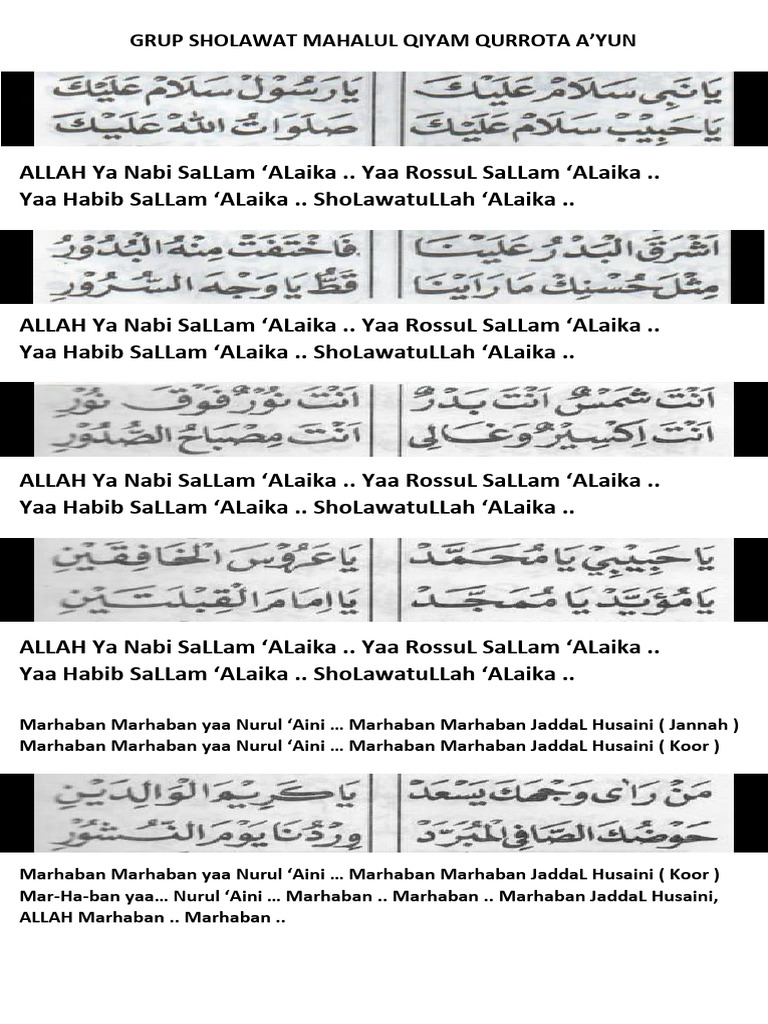 GRUP SHOLAWAT MAHALUL QIYAM QURROTA A’YUN
يَانَبِى سَلَامْ عَلَيْكَ يَارَسُوْل سَلَامْ عَلَيْكَ
يَاحَبِيْبْ سَلَامْ عَلَيْكَ صَلَوَاتُ اللهْ عَلَيْكَ
ALLAH Ya Nabi SaLLam ‘ALaika .. Yaa RossuL SaLLam ‘ALaika ..
Yaa Habib SaLLam ‘ALaika .. ShoLawatuLLah ‘ALaika ..
اَشْرَقَ الْبَدْرُ عَلَيْنَا فَاخْتَفَتْ مِنْهُ الْبُدُوْرُ
مِثْلَ حُسْنِكْ مَا رَاَيْنَا قَطُّ يَا وَجْهَ السُّرُوْرِ
ALLAH Ya Nabi SaLLam ‘ALaika .. Yaa RossuL SaLLam ‘ALaika ..
Yaa Habib SaLLam ‘ALaika .. ShoLawatuLLah ‘ALaika ..
اَنْتَ شَمْسٌ اَنْتَ بَدْرٌ اَنْتَ نُوْرٌ فَوْقَ نُوْرٍ
اَنْتَ اِكْسِيْرٌ وَغَالِى اَنْتَ مِصْبَاحُ الصُّدُوْرِ
ALLAH Ya Nabi SaLLam ‘ALaika .. Yaa RossuL SaLLam ‘ALaika ..
Yaa Habib SaLLam ‘ALaika .. ShoLawatuLLah ‘ALaika ..
يَا حَبِيْبِيْ يَا مُحَمَّدْ يَا عَرُوْسَ الْخَافِقَيْنِ
يَا مُؤَيَّدْ يَا مُمَجَّدْ يَا اِمَامَ الْقِبْلَتَيْنِ
ALLAH Ya Nabi SaLLam ‘ALaika .. Yaa RossuL SaLLam ‘ALaika ..
Yaa Habib SaLLam ‘ALaika .. ShoLawatuLLah ‘ALaika ..
Marhaban Marhaban yaa Nurul ‘Aini … Marhaban Marhaban JaddaL Husaini ( Jannah )
Marhaban Marhaban yaa Nurul ‘Aini … Marhaban Marhaban JaddaL Husaini ( Koor )
مَنْ رَاٰى وَجْهَكَ يَسْعَدْ يَا كَرِيْمَ الْوَالِدَيْنِ
حَوْضُكَ الصَّافِى الْمُبَرَّدْ وِرْدُنَا يَوْمَ النُّشُوْرِ
Marhaban Marhaban yaa Nurul ‘Aini … Marhaban Marhaban JaddaL Husaini ( Koor )
Mar-Ha-ban yaa… Nurul ‘Aini … Marhaban .. Marhaban .. Marhaban JaddaL Husaini,
ALLAH Marhaban .. Marhaban ..